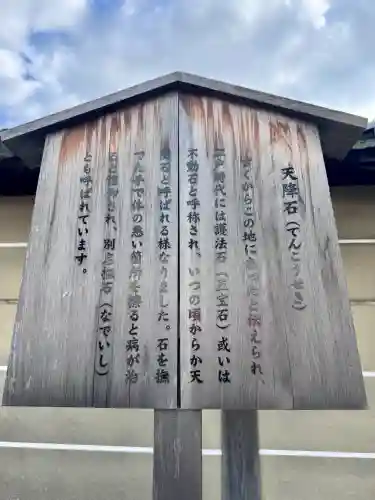 天降石（てんこうせき）
古くからこの地にあったと伝えられ、
江戸時代には護法石（三宝石）或いは
不動石と呼称され、いつの頃からか天
降石と呼ばれる様なりました。石を撫
でた手で体の悪い箇所を擦ると病が治
ると信仰され、別名撫石（なでいし）
とも呼ばれています。